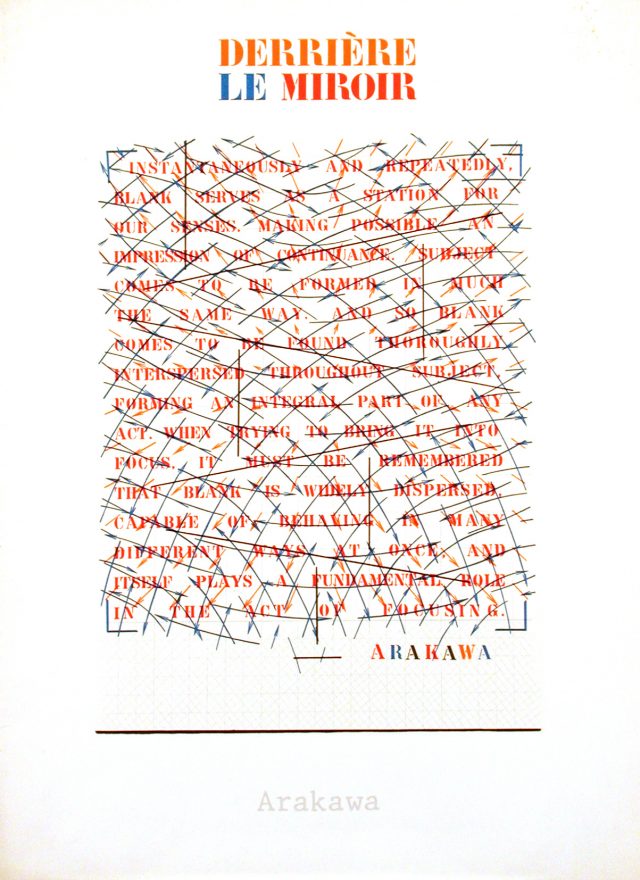 DERRIÈRE
LE MIROIR
INSTANTANEOUSLY AND REPEATEDLY,
BLANK SERVES AS A STATION FOR
OUR SENSES, MAKING POSSIBLE AN
IMPRESSION OF CONTINUANCE. SUBJECT
COMES TO BE FORMED IN MUCH
THE SAME WAY. AND SO BLANK
COMES TO BE FOUND THOROUGHLY
INTERSPERSED THROUGHOUT SUBJECT,
FORMING AN INTEGRAL PART OF ANY
ACT. WHEN TRYING TO BRING IT INTO
FOCUS, IT MUST BE REMEMBERED
THAT BLANK IS WIDELY DISPERSED,
CAPABLE OF BEHAVING IN MANY
DIFFERENT WAYS AT ONCE, AND
ITSELF PLAYS A FUNDAMENTAL ROLE
IN THE ACT OF FOCUSING.
ARAKAWA
Arakawa